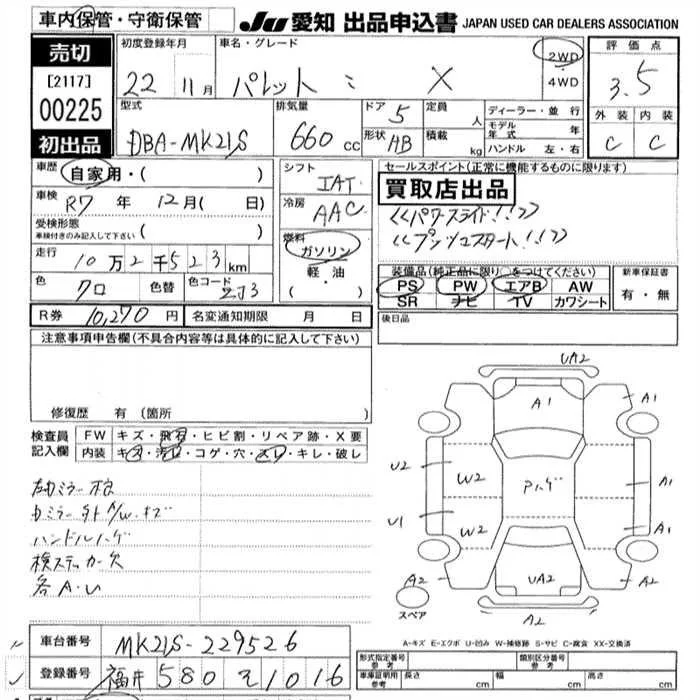 車内保管・守衛保管
JU 愛知 出品申込書 JAPAN USED CAR DEALERS ASSOCIATION
売切
[2117]
00225
初出品
初度登録年月
22 11月
車名・グレード
パレット : X
2WD
4WD
評価点
3.5
外装 内装
C C
型式
DBA-MK21S
排気量
660 cc
ドア 5
形状 HB
定員 人
積載 kg
ディーラー・並行
モデル年式 年
ハンドル 左・右
車歴
自家用・( )
車検 R7 年 12月( 日)
受検形態
車検付きのみ記入して下さい ( )
走行 10万2千523km
色 クロ 色替 色コード ZJ3
シフト
IAT
冷房
AAC
燃料
ガソリン
軽・油
・( )
セールスポイント(正常に機能するものに限ります)
買取店出品
<<パワースライド!!>>
<<プッシュスタート!!>>
装備品(純正品に限り○をつけてください)
PS PW エアB AW
SR ナビ TV カワシート
新車保証書
有・無
R券 10,270 円 名変通知期限 月 日
後日品
注意事項申告欄(不具合内容等は具体的に記入して下さい)
修復歴 有(箇所 )
検査員記入欄
FW キズ・飛石・ヒビ割・リペア跡・X要
内装 キズ・汚れ・コゲ・穴・スレ・キレ・破レ
ハンドルハゲ
検ステッカー欠
各A・U
UA2
A1
A1
U2
W2
Pハゲ
A1
U1
W2
A1
A2
UA2
A2
スペア
A2
A-キズ E-エクボ U-凹み W-補修跡 S-サビ C-腐食 XX-交換済
車台番号 MK21S-229526
登録番号 福井 580 え 1016
形式指定番号 参考
類別区分番号 参考
車庫証明用 参考 長さ cm 幅 cm 高さ cm